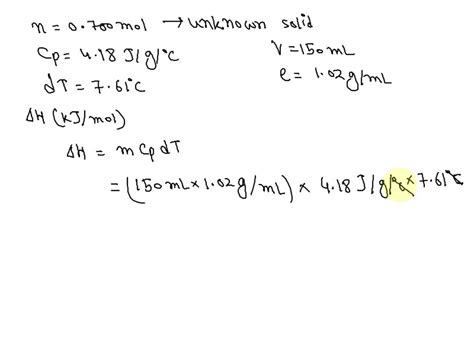 n = 0.700mol → unknown solid
Cp = 4.18 J/g/°C
V = 150 mL
dT = 7.61°C
e = 1.02 g/mL
ΔH (kJ/mol)
ΔH = m Cp dT
= (150 mL × 1.02 g/mL) × 4.18 J/g/°C × 7.61°C